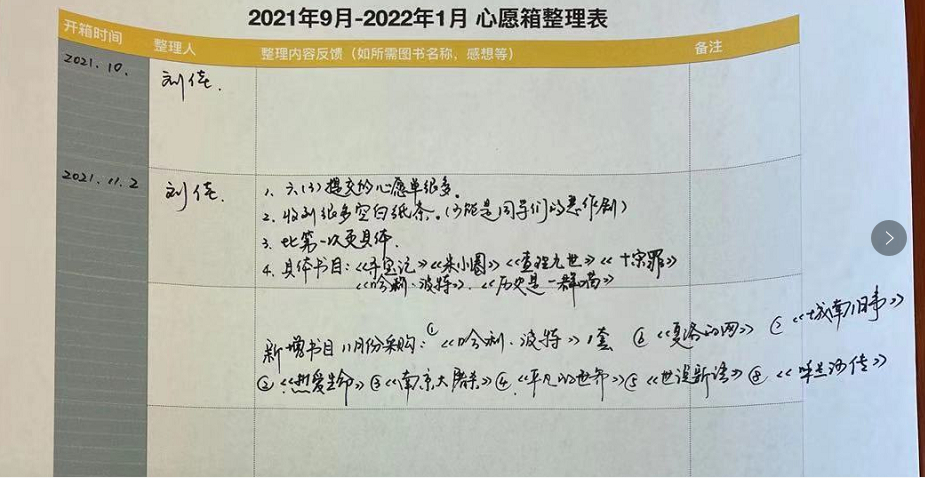 2021年9月-2022年1月 心愿箱整理表
开箱时间 整理人 整理内容反馈（如所需图书名称，感想等） 备注
2021.10. 刘倩.
2021.11.2 刘倩.
1、六(3)提交的心愿单很多.
2、收到很多空白纸条。(可能是同学们的恶作剧)
3、比第一次更具体.
4、具体书目:《寻宝记》《朱小圈》《查理九世》《十宗罪》
《哈利·波特》.《历史是一群喵》
新增书目 11月份采购:①《哈利·波特》1套 ⑥《夏洛的网》 ⑦《城南旧事》
②《热爱生命》③《南京大屠杀》④《平凡的世界》⑤《世说新语》⑧《呼兰河传》